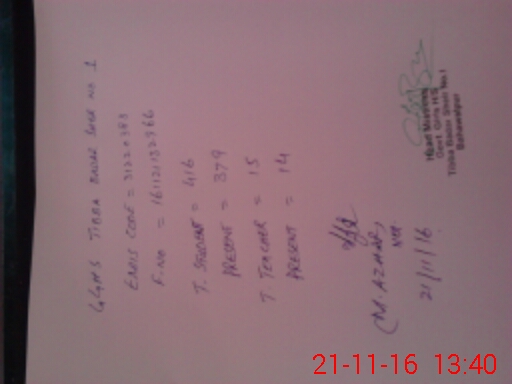 GGHS TIBBA BADAR SHER NO 1
EMIS CODE = 31220383
F.NO = 161121132966
T. STUDENT = 416
PRESENT = 379
T TEACHER = 15
PRESENT = 14
(M. AZHAR)
21/11/16
Head Mistress
Govt. Girls H/S
Tibba Badar Sher No.1
Bahawalpur
21-11-16 13:40